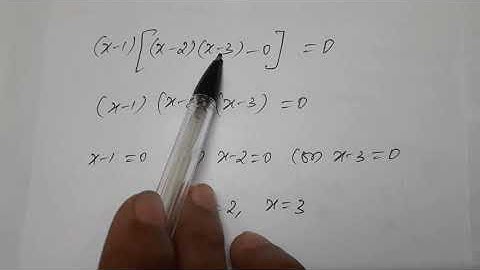 (x-1)[(x-2)(x-3)-0] =0
(x-1) (x- (x-3) =0
x-1=0 x-2=0 (or) x-3=0
=2, x=3